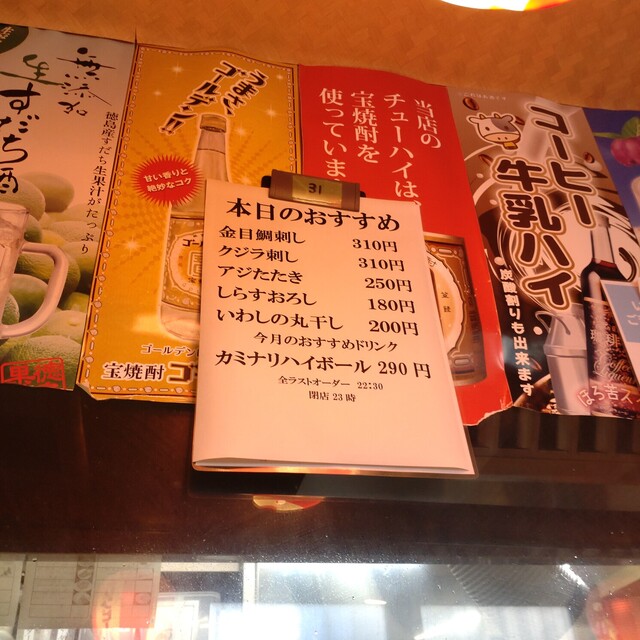 無添加
生すだち酒
徳島産すだち生果汁がたっぷり
うまさ、
ゴールデン!!
甘い香りと
絶妙なコク
宝焼酎
当店の
チューハイは、
宝焼酎を
使っていま
31
本日のおすすめ
金目鯛刺し 310円
クジラ刺し 310円
アジたたき 250円
しらすおろし 180円
いわしの丸干し 200円
今月のおすすめドリンク
カミナリハイボール 290円
全ラストオーダー 22:30
閉店 23時
コーヒー
牛乳ハイ
炭酸割りも出来ます